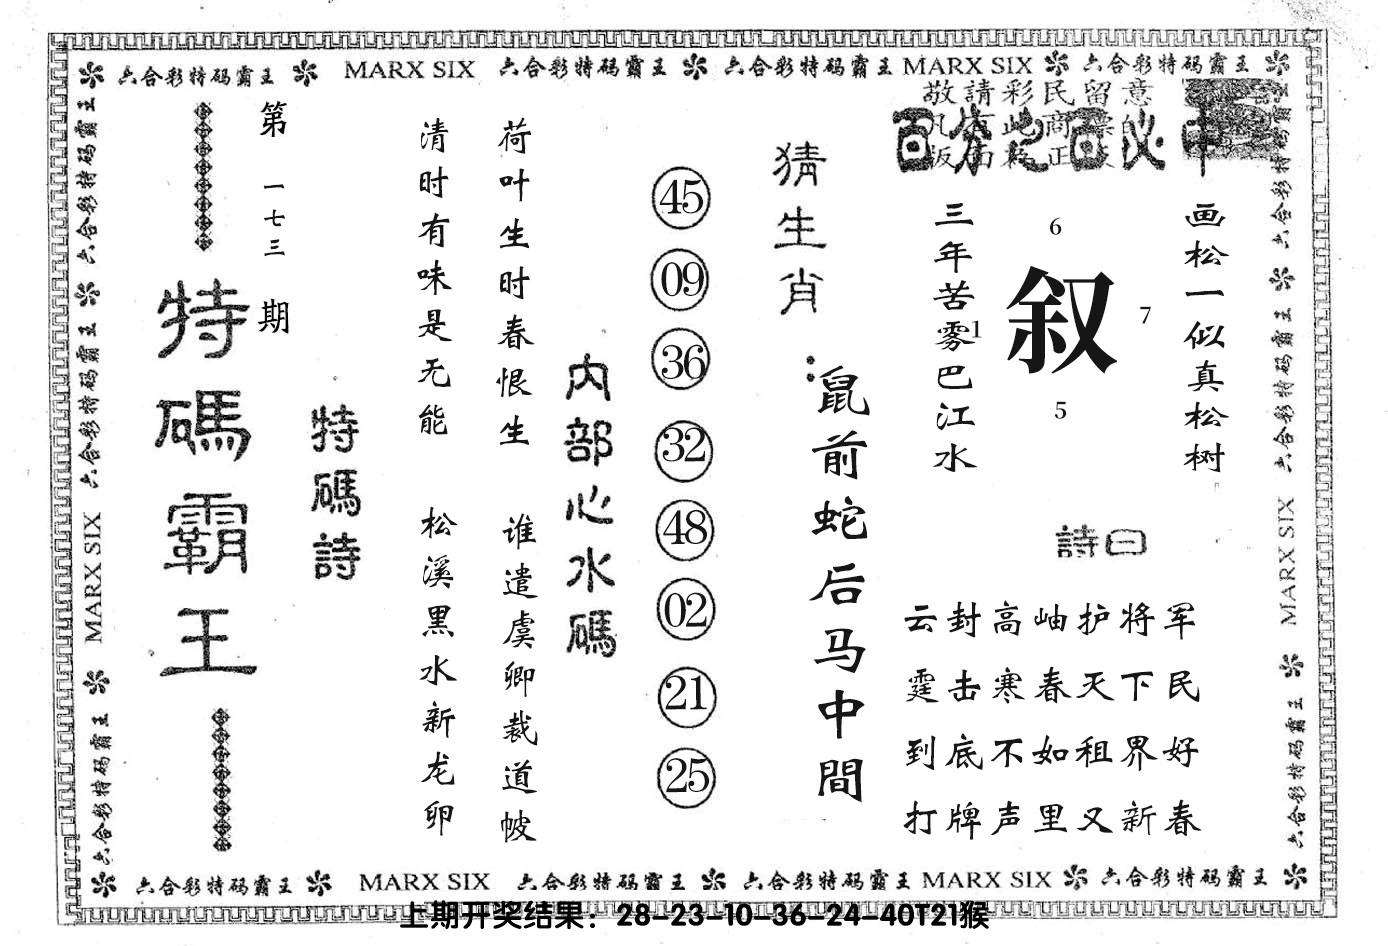 六合彩特码霸王 MARX SIX 六合彩特码霸王 六合彩特码霸王 MARX SIX 六合彩特码霸王
敬請彩民留意
百分之百必中
画松一似真松树
6
叙
7
1
5
三年苦雾巴江水
詩曰
云封高岫护将军
霆击寒春天下民
到底不如租界好
打牌声里又新春
猜生肖:
鼠前蛇后马中間
45
09
36
32
48
02
21
25
内部心水碼
荷叶生时春恨生
谁遣虞卿裁道帔
清时有味是无能
松溪黑水新龙卵
特碼詩
第一七三期
特碼霸王
六合彩特码霸王 六合彩特码霸王 MARX SIX 六合彩特码霸王
六合彩特码霸王 六合彩特码霸王 MARX SIX 六合彩特码霸王
六合彩特码霸王 MARX SIX 六合彩特码霸王 六合彩特码霸王 MARX SIX 六合彩特码霸王
上期开奖结果：28-23-10-36-24-40T21猴